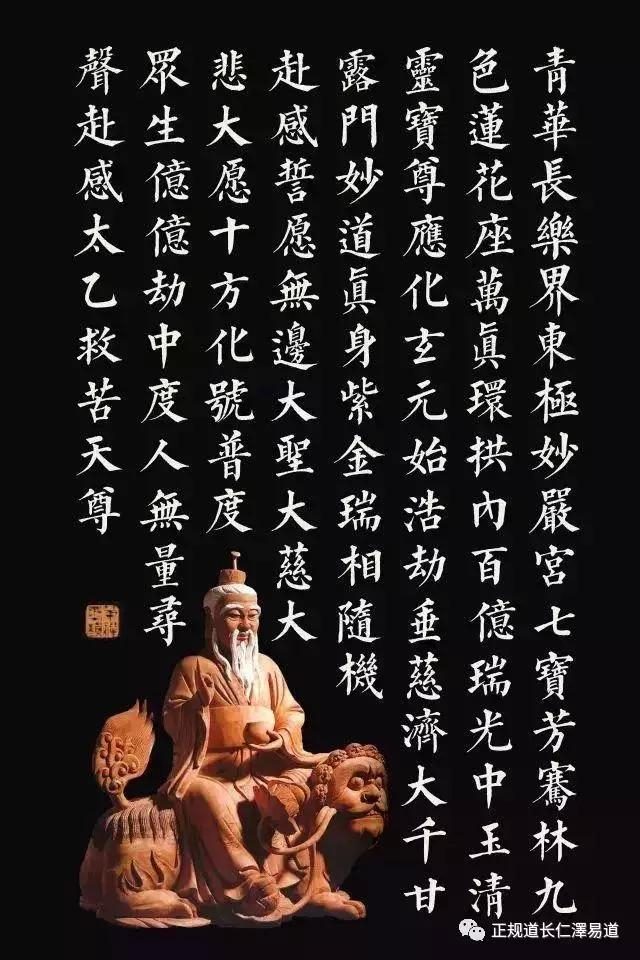 青華長樂界東極妙嚴宮七寶芳騫林九
色蓮花座萬眞環拱內百億瑞光中玉清
靈寶尊應化玄元始浩劫垂慈濟大千甘
露門妙道眞身紫金瑞相隨機
赴感誓愿無邊大聖大慈大
悲大愿十方化號普度
眾生億億劫中度人無量尋
聲赴感太乙救苦天尊
正规道长仁澤易道